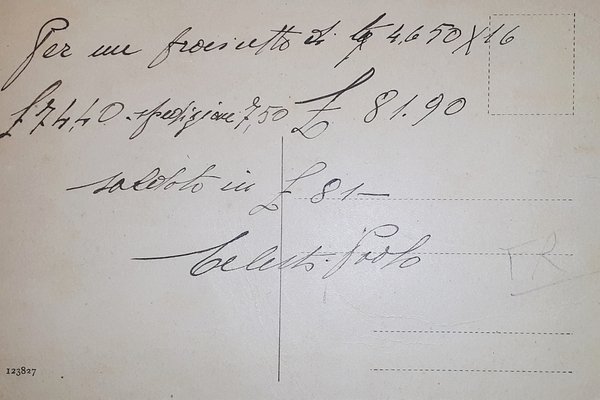 Per un prosciutto di Kg 4,650 X 16
£ 74,40 spedizione 7,50 £ 81.90
saldato in £ 81—
Celesti Paolo
FR
123827